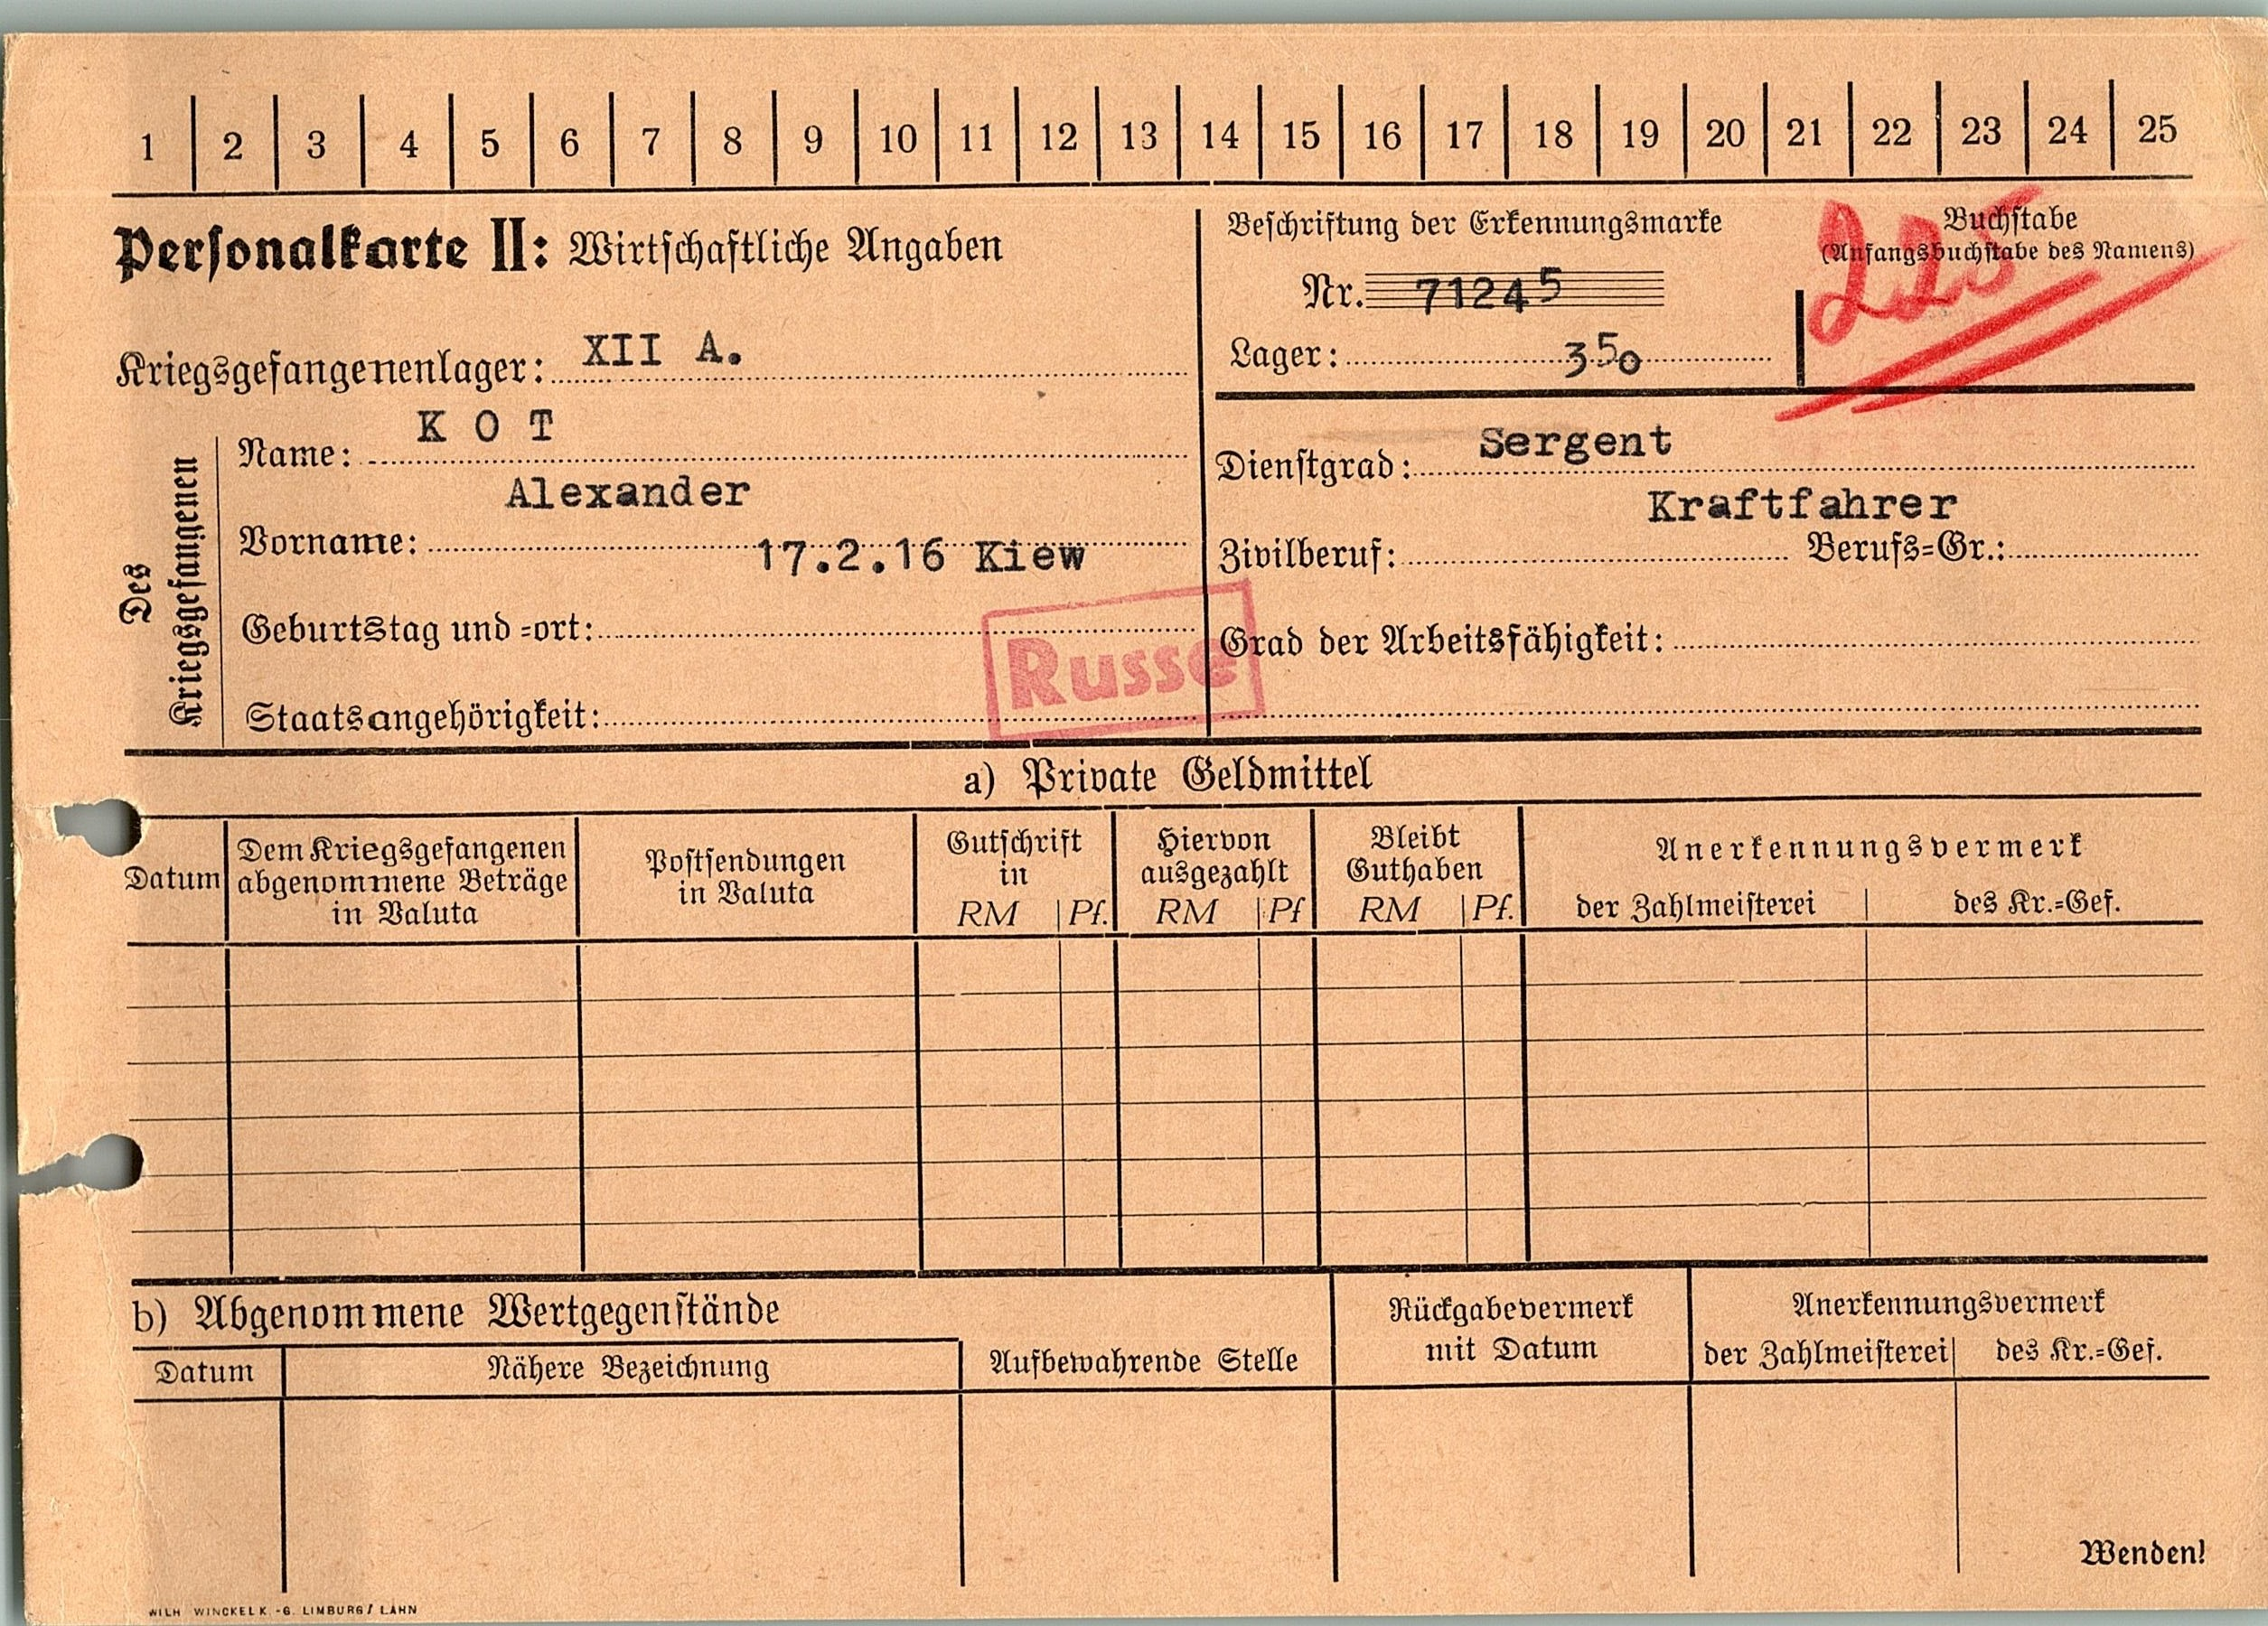 1 2 3 4 5 6 7 8 9 10 11 12 13 14 15 16 17 18 19 20 21 22 23 24 25
Personalkarte II: Wirtschaftliche Angaben
Kriegsgefangenenlager: XII A.
Beschriftung der Erkennungsmarke
Nr. 71245
Lager: 350
Buchstabe
(Anfangsbuchstabe des Namens)
225
Des
Kriegsgefangenen
Name: K O T
Vorname: Alexander
Geburtstag und =ort: 17.2.16 Kiew
Staatsangehörigkeit: Russe
Dienstgrad: Sergent
Zivilberuf: Kraftfahrer Berufs=Gr.:
Grad der Arbeitsfähigkeit:
a) Private Geldmittel
Datum
Dem Kriegsgefangenen
abgenommene Beträge
in Valuta
Postsendungen
in Valuta
Gutschrift
in
RM Pf.
Hiervon
ausgezahlt
RM Pf
Bleibt
Guthaben
RM Pf.
Anerkennungsvermerk
der Zahlmeisterei des Kr.=Gef.
b) Abgenommene Wertgegenstände
Datum
Nähere Bezeichnung
Aufbewahrende Stelle
Rückgabevermerk
mit Datum
Anerkennungsvermerk
der Zahlmeisterei des Kr.=Gef.
Wenden!
WILH WINCKEL K.-G. LIMBURG / LAHN